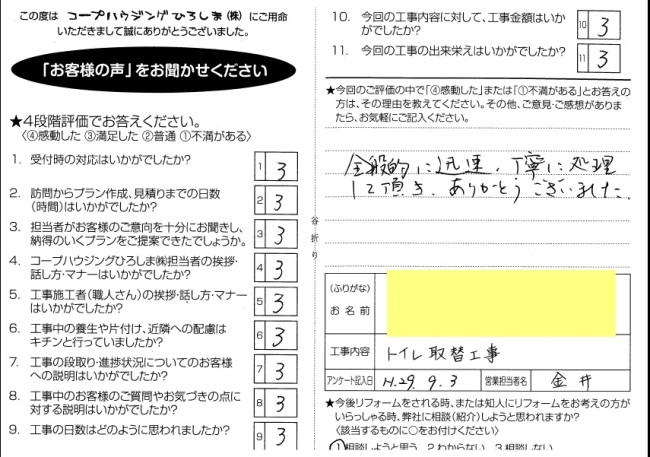 この度は コープハウジングひろしま(株) にご用命
いただきまして誠にありがとうございました。
「お客様の声」をお聞かせください
★4段階評価でお答えください。
〈④感動した ③満足した ②普通 ①不満がある〉
1. 受付時の対応はいかがでしたか？
1 3
2. 訪問からプラン作成、見積りまでの日数
(時間)はいかがでしたか？
2 3
3. 担当者がお客様のご意向を十分にお聞きし、
納得のいくプランをご提案できたでしょうか。
3 3
4. コープハウジングひろしま㈱担当者の挨拶・
話し方・マナーはいかがでしたか？
4 3
5. 工事施工者(職人さん)の挨拶・話し方・マナー
はいかがでしたか？
5 3
6. 工事中の養生や片付け、近隣への配慮は
キチンと行っていましたか？
6 3
7. 工事の段取り・進捗状況についてのお客様
への説明はいかがでしたか？
7 3
8. 工事中のお客様のご質問やお気づきの点に
対する説明はいかがでしたか？
8 3
9. 工事の日数はどのように思われましたか？
9 3
谷折り
10. 今回の工事内容に対して、工事金額はいか
がでしたか？
10 3
11. 今回の工事の出来栄えはいかがでしたか？
11 3
★今回のご評価の中で「④感動した」または「①不満がある」とお答え
の方は、その理由を教えてください。その他、ご意見・ご感想がありま
したら、お気軽にご記入ください。
全般的に迅速、丁寧に処理
して頂き、ありがとうございました。
(ふりがな)
お名前
工事内容 トイレ取替工事
アンケート記入日 H.29. 9. 3 営業担当者名 金井
★今後リフォームをされる時、または知人にリフォームをお考えの方が
いらっしゃる時、弊社に相談(紹介)しようと思われますか？
〈該当するものに○をお付けください〉
1 相談しようと思う 2 わからない 3 相談しない